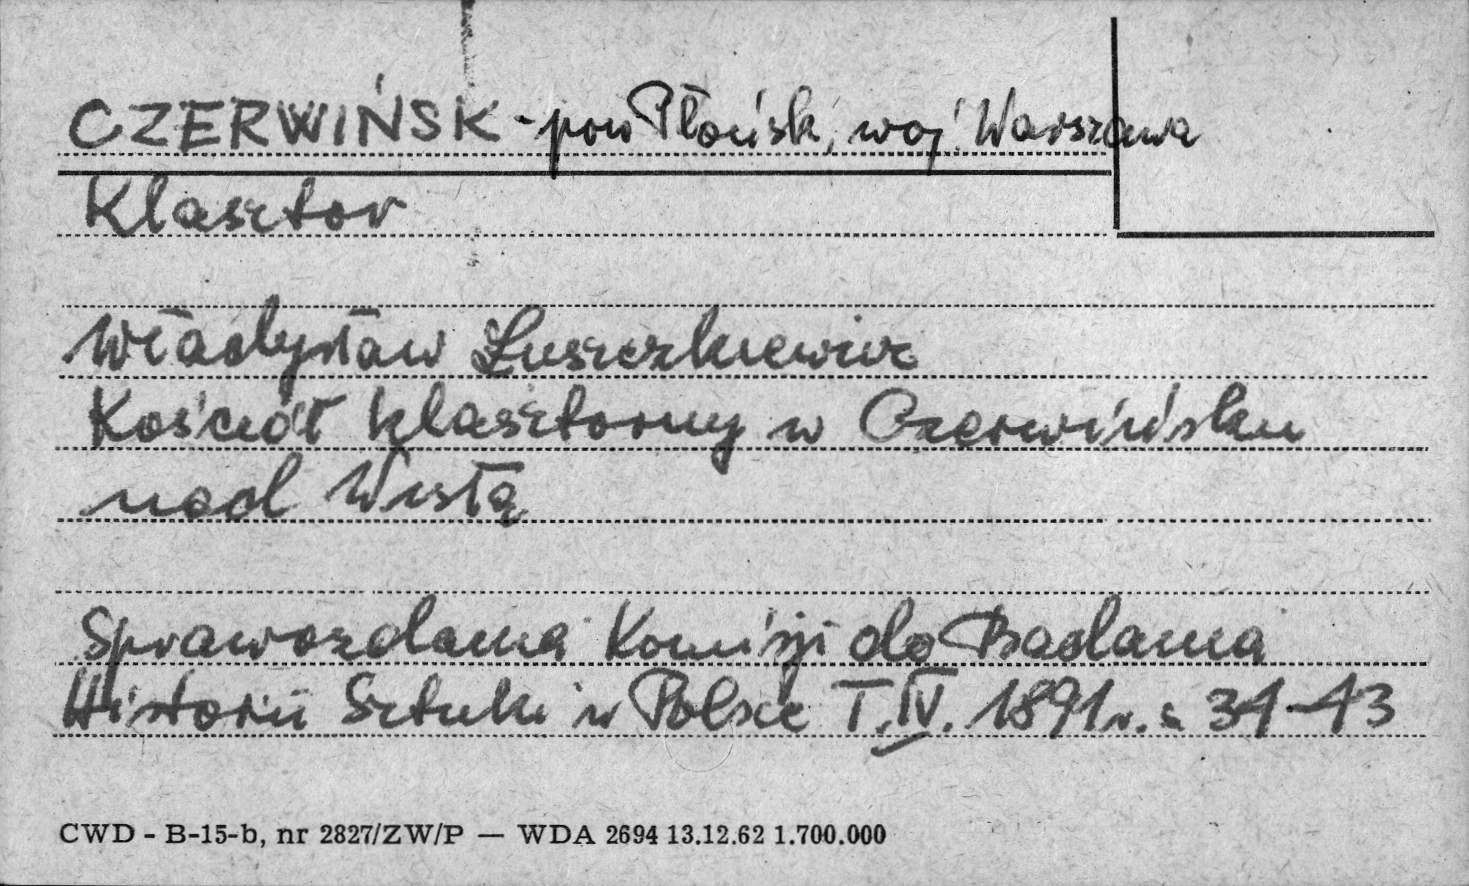 CZERWIŃSK - pow Płońsk, woj. Warszawa
Klasztor
Władysław Łuszczkiewicz
Kościół klasztorny w Czerwińsku
nad Wisłą
Sprawozdania Komisji do Badania
Historii Sztuki w Polsce T. IV. 1891 r. s 34-43
CWD - B-15-b, nr 2827/ZW/P — WDA 2694 13.12.62 1.700.000